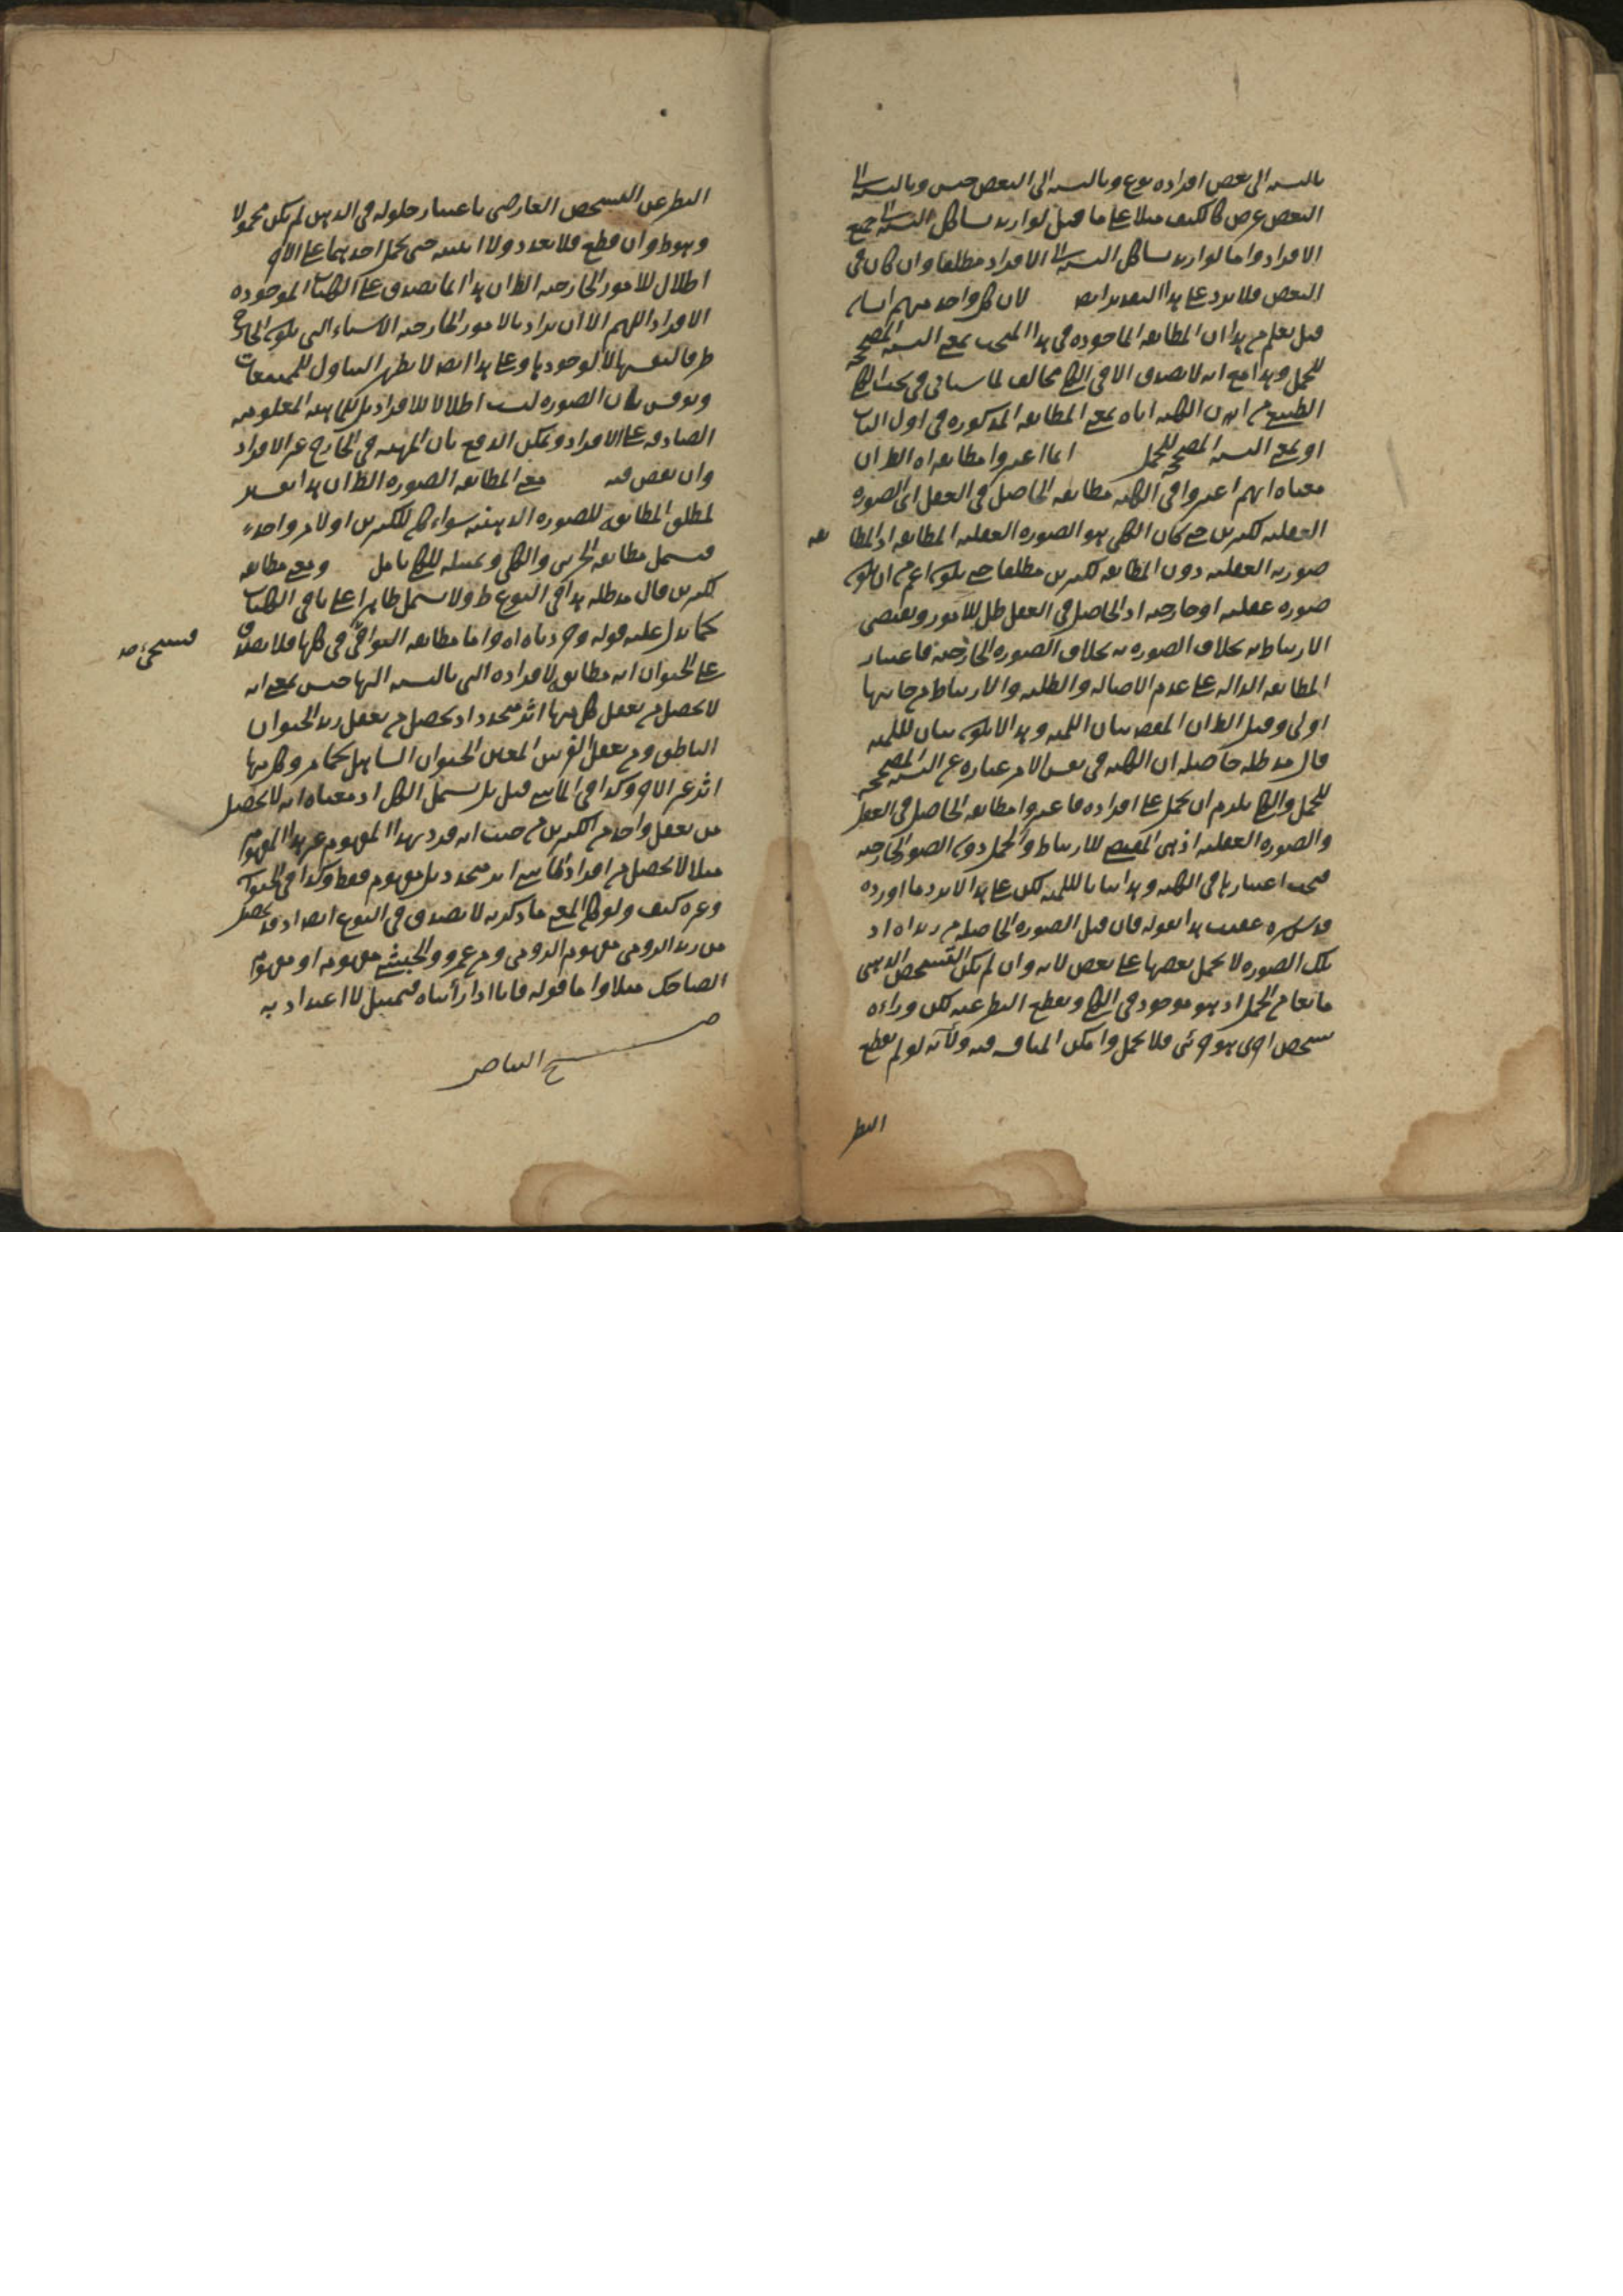 بالنسبه الى بعض افراده نوع وبالنسبه الى البعض جنس وبالنسبه الى
البعض عرض كالكيف مثلا على ما قيل لو اريد بسا كل النسبه الى جميع
الافراد واما لو اريد بسا كل النسبه الى الافراد مطلقا وان كان فى
البعض فلا يرد على هذا البعد براىه لان كل واحد منهم اساىه
قيل يعلم من هذا ان المطابقه الماخوذه فى هذا المبحث بمعنى النسبه المصححه
للحمل وهذا مع انه لا يصدق الا فى الكلى مخالف لما سياتى فى بحث الكلى
الطبيعى من ان الكليه اياه بمعنى المطابقه المذكوره فى اول الباب
او بمعنى النسبه المصححه للحمل انما اعتبروا مطابقه اه الظ ان
معناه انهم اعتبروا فى الكليه مطابقه الحاصل فى العقل اى الصوره
العقليه لكثيرين حتى كان الكلى هو الصوره العقليه المطابقه اذ المطابقه
صوريه العقليه دون المطابقه لكثيرين مطلقا حتى يكون اعم من ان يكون
صوره عقليه او خارجيه اذ الحاصل فى العقل ظل للامور ويقتضى
الارتباط به بخلاف الصوره به بخلاف الصوره الخارجيه فاعتبار
المطابقه الداله على عدم الاصاله والظليه والارتباط من جانبها
اولى وقيل الظ ان المقص بيان اللميه وهذا لا يكون بيان للميه
قال مد ظله حاصله ان الكليه فى نفس الامر عباره عن النسبه المصححه
للحمل والكلى يلزم ان يحمل على افراده فاعتبروا مطابقه الحاصل فى العقل
والصوره العقليه اذ هى المقتضى للارتباط والحمل دون الصور الخارجيه
فيجب اعتبارها فى الكليه وهذا بيانا لللميه لكن على هذا لا يرد ما اورده
قدس سره عقيب هذا بقوله فان قيل الصوره الحاصله من زيد اه اذ
تلك الصوره لا يحمل بعضها على بعض لانه وان لم يكن التشخص الذهنى
مانعا من الحمل اذ هو موجود فى الكلى ويقطع النظر عنه لكن وراءه
تشخص اخر هو جزئى فلا يحمل وامكن المناقشه فيه ولانه لو لم يقطع
النظر
النظر عن التشخص العارضى باعتبار حلوله فى الذهن لم يكن محمولا
وهو ظ وان قطع فلا تعدد ولا اثنينيه حتى يحمل احدهما على الاخر
اظلال للامور الخارجيه الظ ان هذا انما يصدق على الكليات الموجوده
الافراد اللهم الا ان يراد بالامور الخارجيه الاشياء التى يكون الخارج
ظرفا لنفسها لا لوجودها وعلى هذا ايضا لا يظهر التناول للممتنعات
ونوقش بان الصوره ليست اظلالا للافراد بل للماهيه المعلومه
الصادقه على الافراد ويمكن الدفع بان المهيه فى الخارج عين الافراد
وان نعض فيه معنى المطابقه الصوره الظ ان هذا تفسير
لمطلق المطابقه للصوره الذهنيه سواء كان للكثيرين او لامر واحد
فيشمل مطابقه الجزئى والكلى وتمثيله للكلى تامل ومعنى مطابقه
لكثيرين قال مد ظله هذا فى النوع ظ ولا يشمل ظاهرا على باقى الكليات
كما يدل عليه قوله وجردناه اه واما مطابقه البواقى فى كلها فلا يصدق
على الحيوان انه مطابق لافراده التى بالنسبه اليها جنس بمعنى انه فسيجىء منه
لا يحصل من تعقل كل منها اثر متحدد اذ يحصل من تعقل زيد الحيوان
الناطق ومن تعقل الفرس المعين الحيوان الصاهل كما مر وكل منها
اثر غير الاخر وكذا فى الماشى قيل بل يشمل الكل اذ معناه انه لا يحصل
من تعقل واحد من الكثيرين من حيث انه فرد بهذا المفهوم غير هذا المفهوم
مثلا لا يحصل من افراد الماشى اثر متحدد بل مفهوم فقط وكذا فى الحيوان
وغيره كيف ولو كان المعنى ما ذكرته لا يصدق فى النوع ايضا اذ قد يحصل
من زيد الرومى مفهوم الرومى ومن عمرو والحبشى مفهومه او مفهوم
الضاحك مثلا واما قوله فانا اذا راينا اه فتمثيل لا اعتداد به